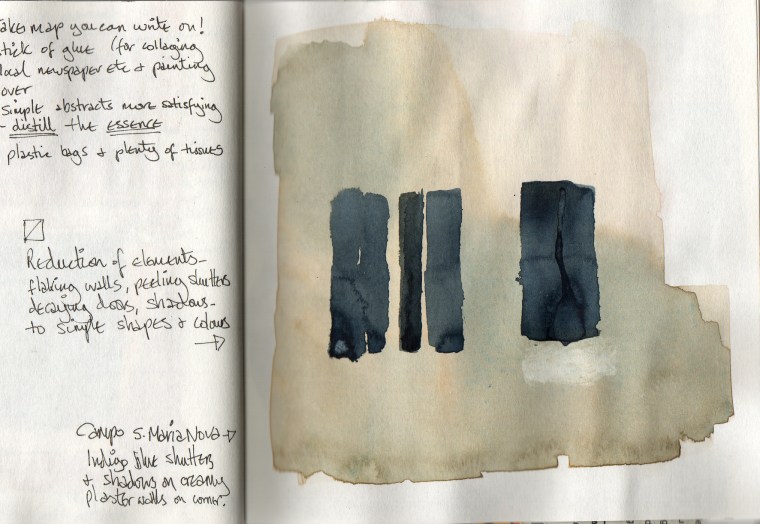 Take map you can write on!
stick of glue (for collaging
local newspaper etc & painting
over
Simple abstracts more satisfying
- distill the ESSENCE
plastic bags & plenty of tissues
Reduction of elements -
flaking walls, peeling shutters
decaying doors, shadows -
to simple shapes & colours
→
Campo S. Maria Nova →
Indigo blue shutters
& shadows on creamy
plaster walls on corner.